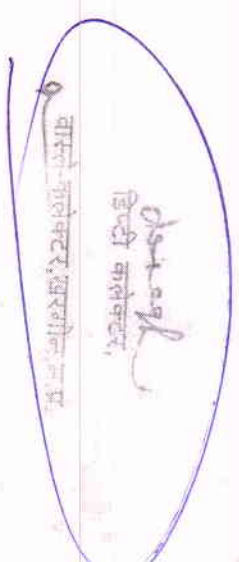 डिप्टी कलेक्टर,
वास्ते-कलेक्टर, खरगोन, म.प्र.